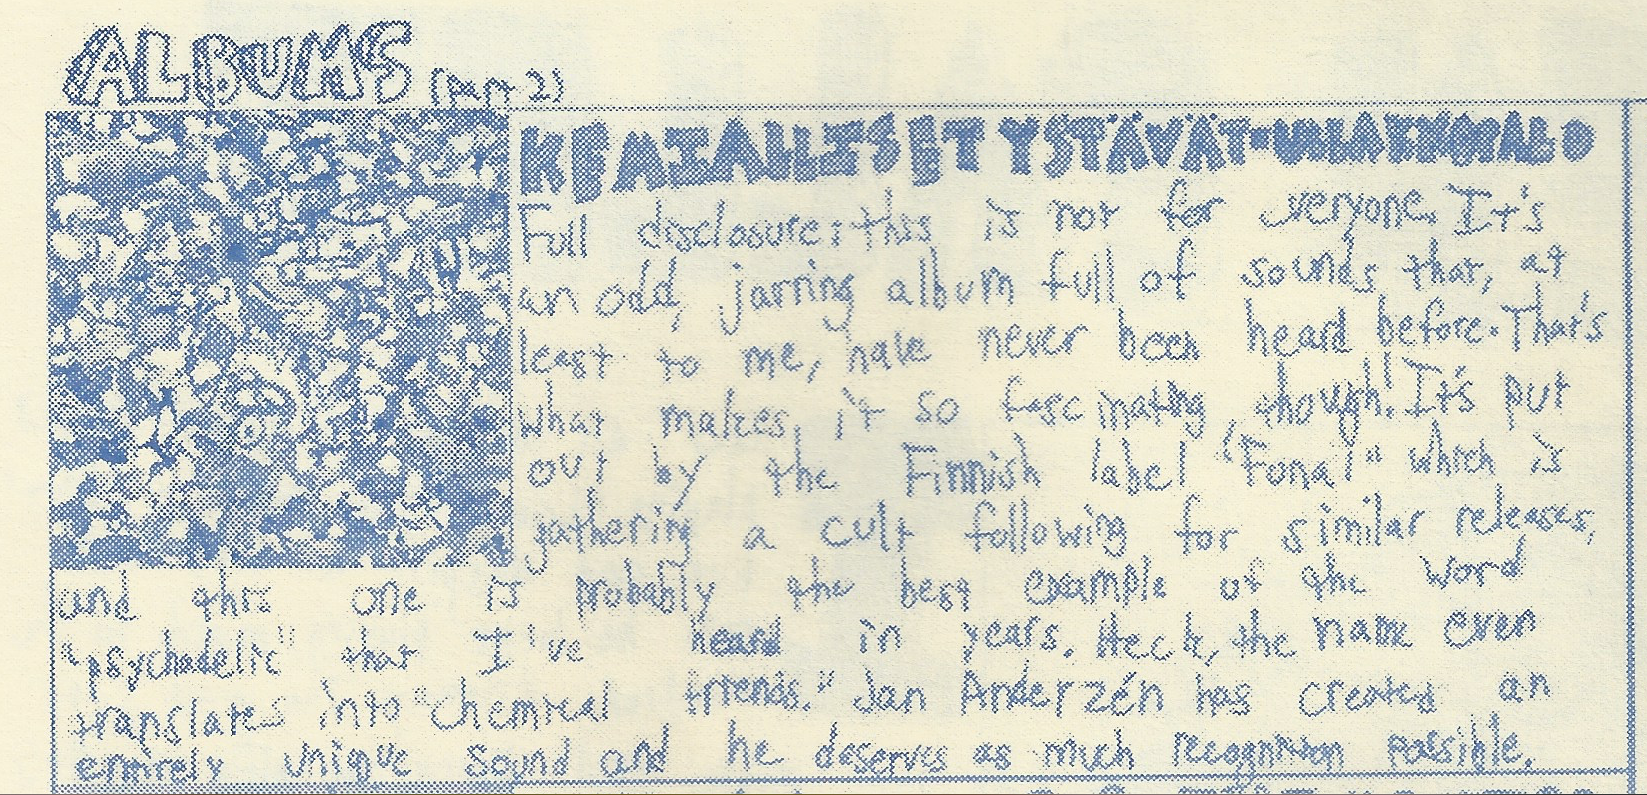 ALBUMS (part 2)
KEMIALLISET YSTÄVÄT - ULLAKKOPALO
Full disclosure: this is not for everyone. It's
an odd, jarring album full of sounds that, at
least to me, have never been heard before. That's
what makes it so fascinating, though! It's put
out by the Finnish label "Fonal" which is
gathering a cult following for similar releases,
and this one is probably the best example of the word
"psychadelic" that I've heard in years. Heck, the name even
translates into "chemical friends." Jan Anderzén has created an
entirely unique sound and he deserves as much recognition possible.